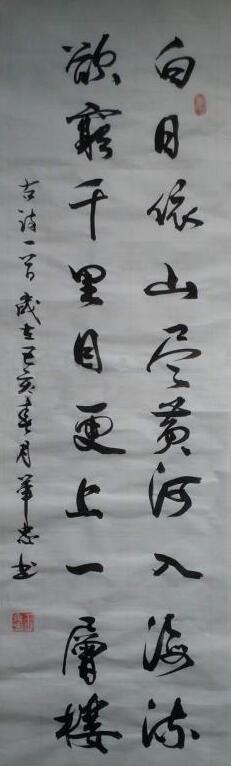 白日依山尽黄河入海流
欲穷千里目更上一层楼
古诗一首岁在己亥春月华忠书